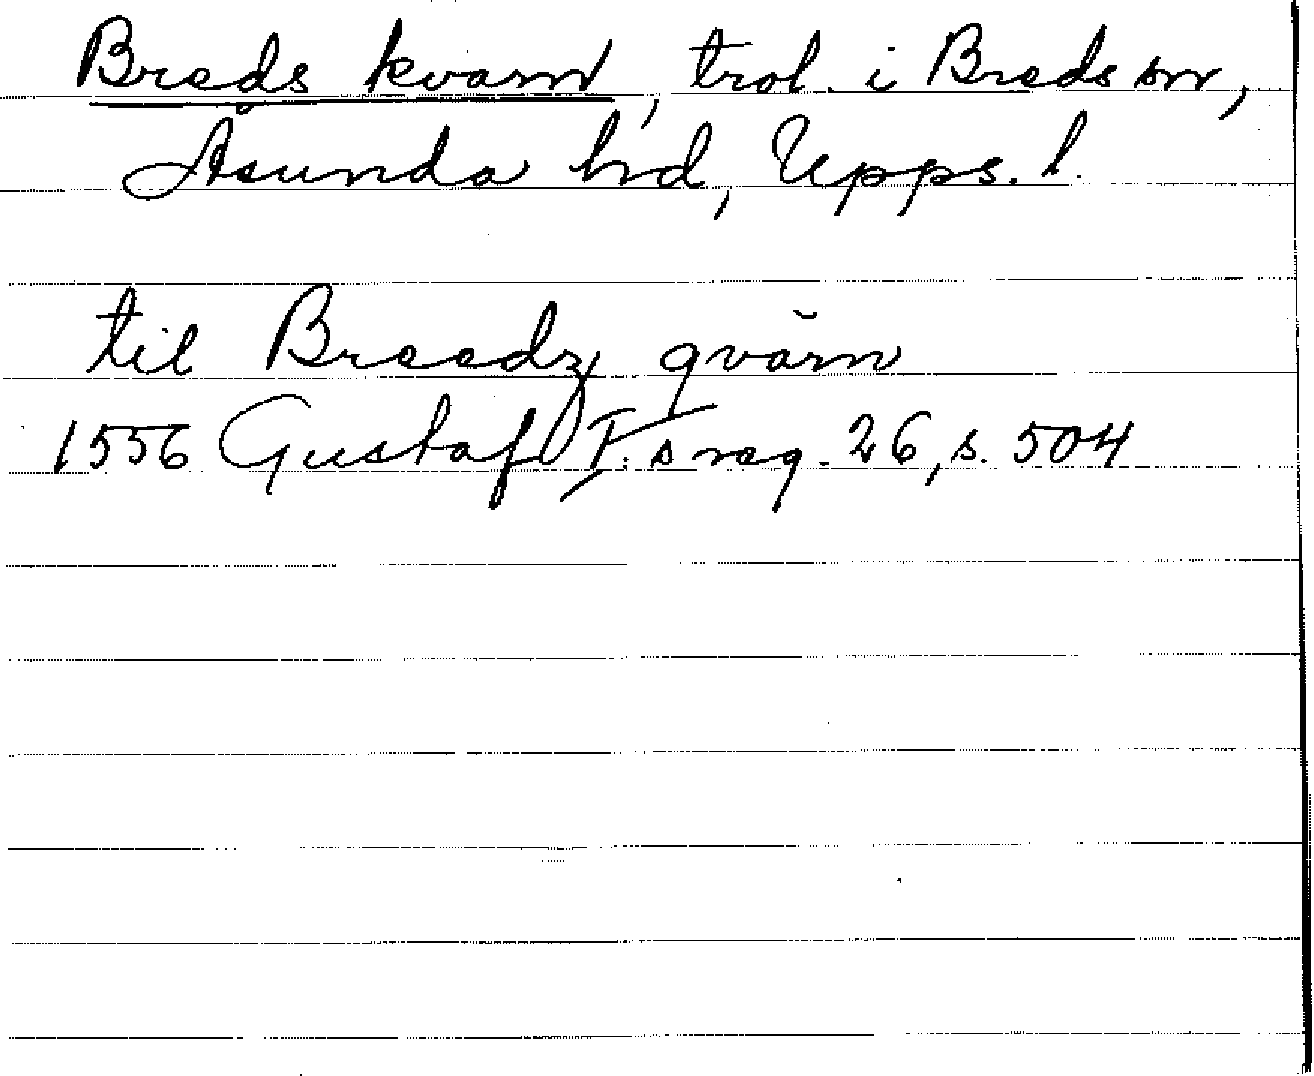 Breds kvarn, trol. i Breds sn,
Åsunda hd, Upps. l.
til Breedz qvarn
1556 Gustaf I:s reg. 26, s. 504